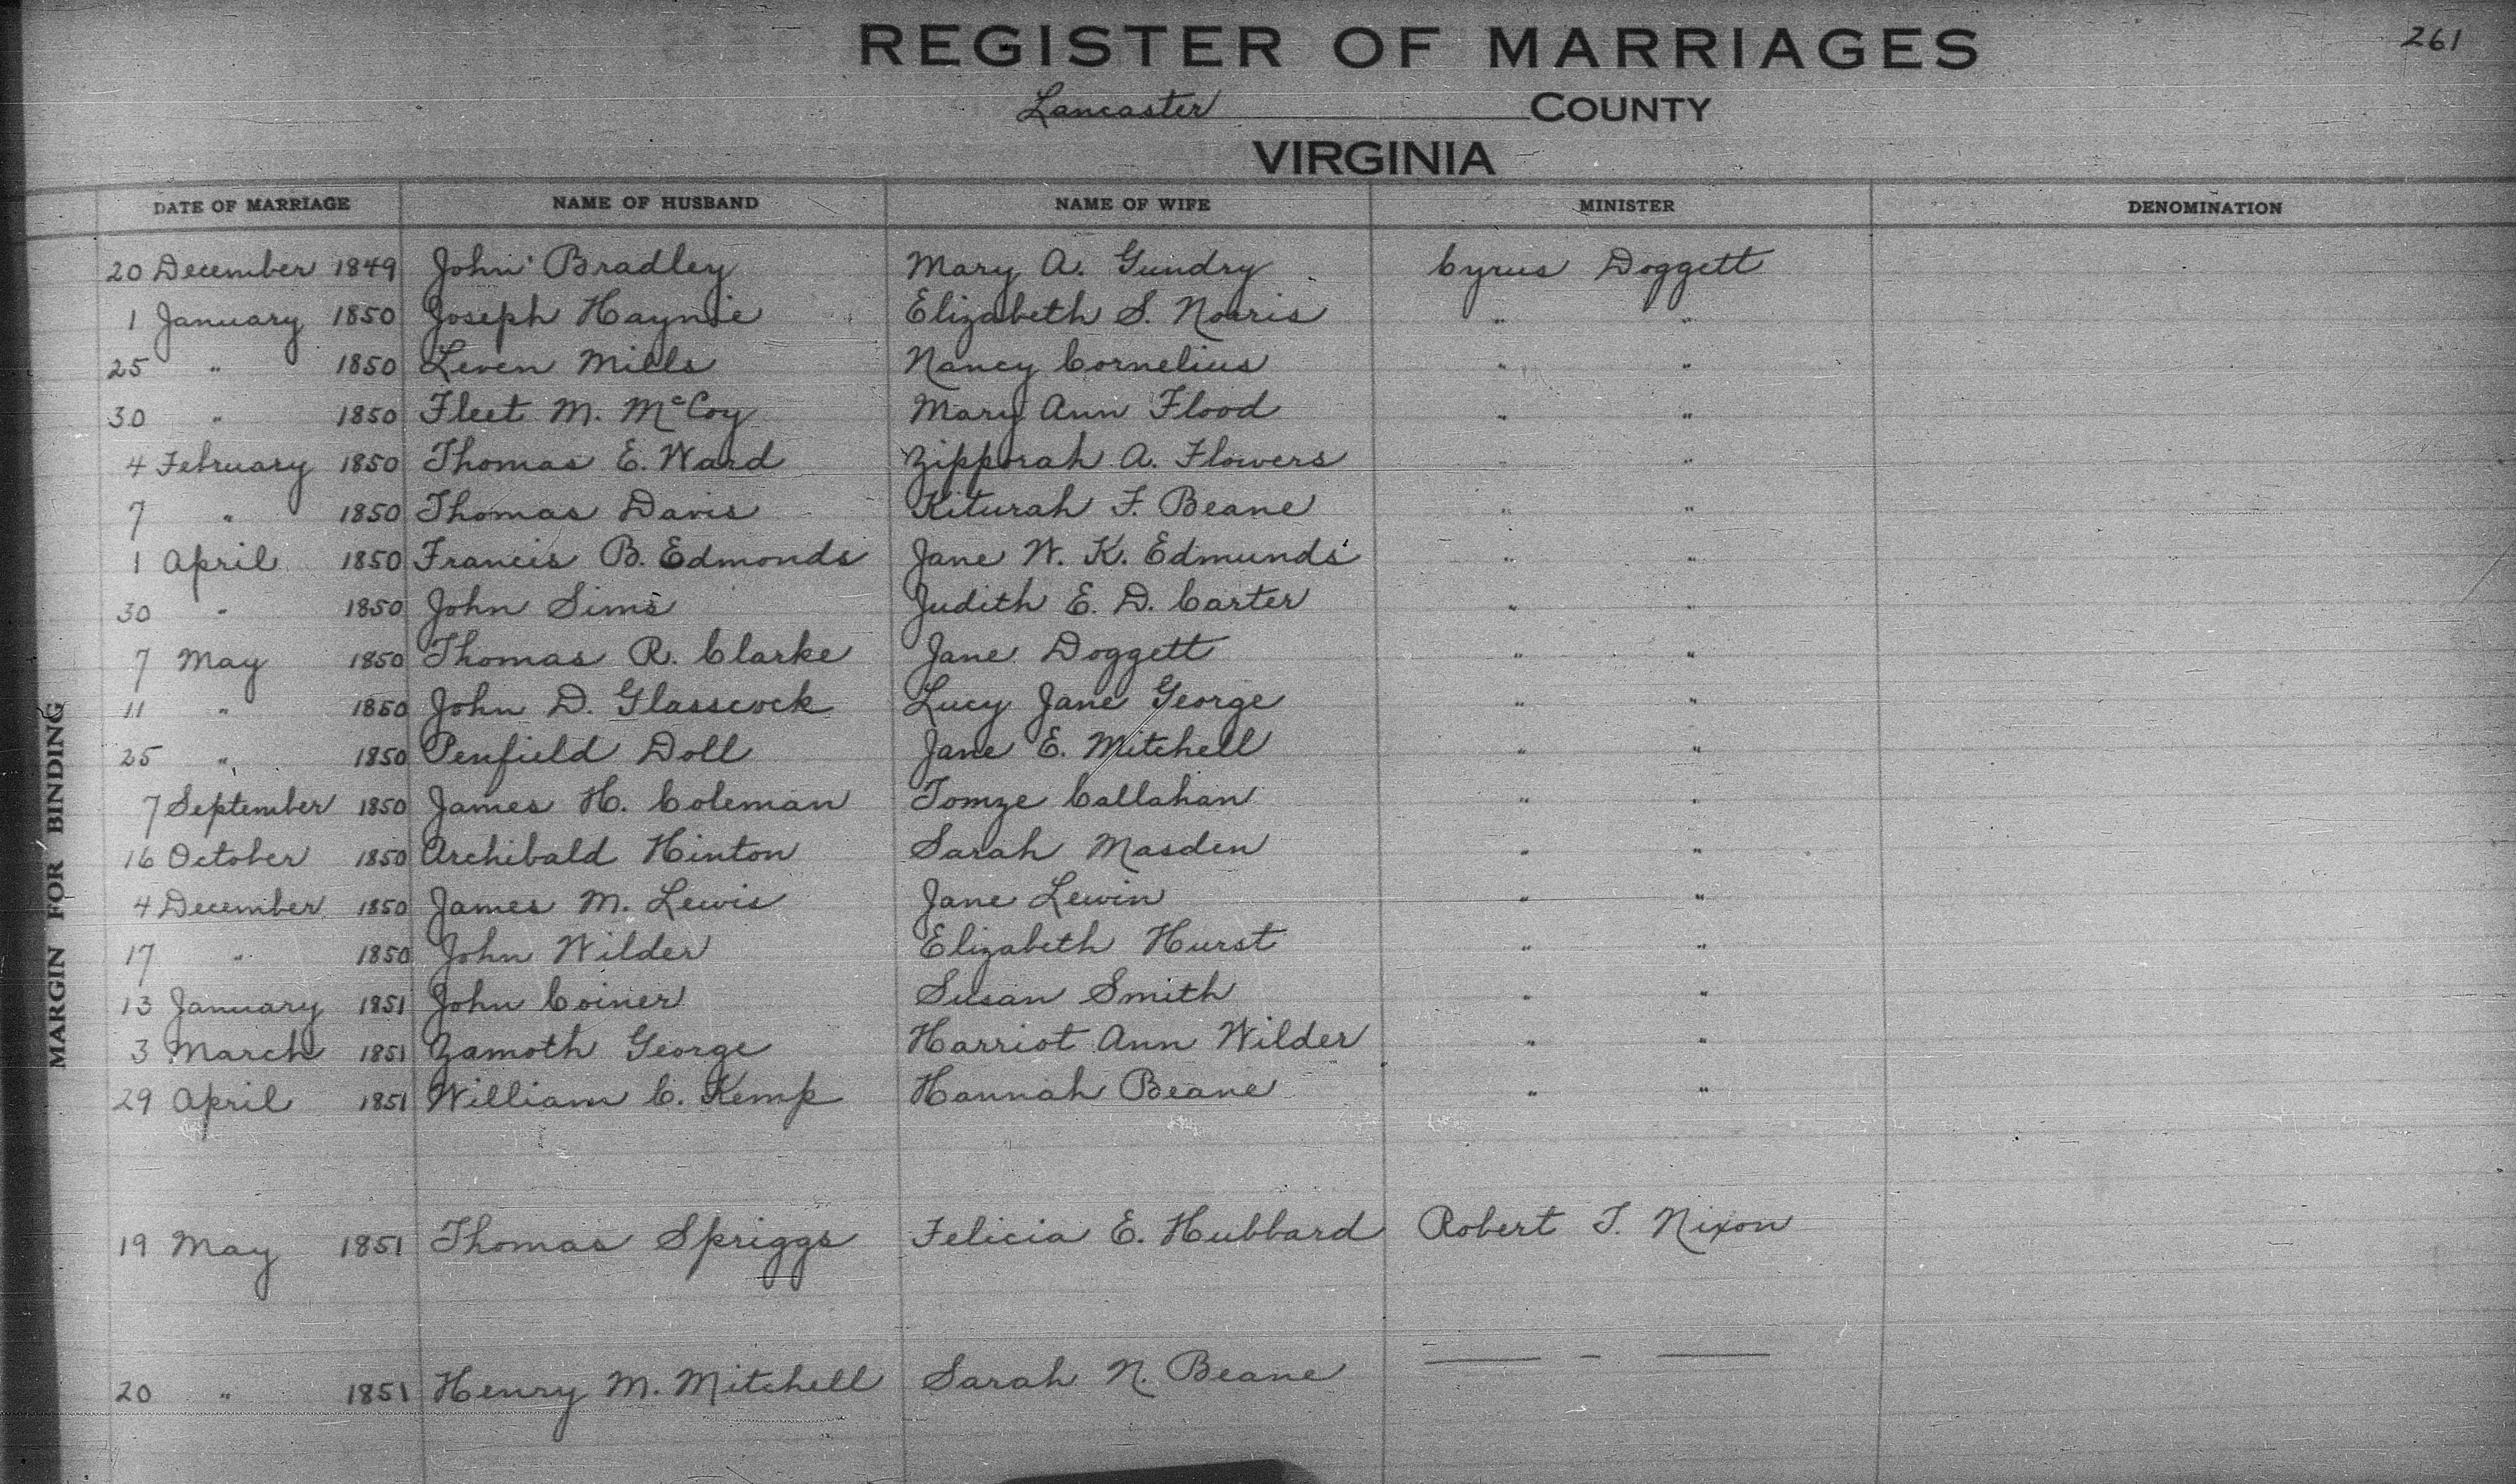 261
REGISTER OF MARRIAGES
Lancaster COUNTY
VIRGINIA
DATE OF MARRIAGE NAME OF HUSBAND NAME OF WIFE MINISTER DENOMINATION
20 December 1849 John Bradley Mary A. Gundry Cyrus Doggett
1 January 1850 Joseph Haynie Elizabeth S. Norris " "
25 " 1850 Leven Mills Nancy Cornelius " "
30 " 1850 Fleet M. McCoy Mary Ann Flood " "
4 February 1850 Thomas E. Ward Zipporah A. Flowers " "
7 " 1850 Thomas Davis Kiturah F. Beane " "
1 April 1850 Francis B. Edmonds Jane W. K. Edmunds " "
30 " 1850 John Sims Judith E. D. Carter " "
7 May 1850 Thomas R. Clarke Jane Doggett " "
11 " 1850 John D. Glasscock Lucy Jane George " "
25 " 1850 Penfield Doll Jane E. Mitchell " "
7 September 1850 James H. Coleman Tomze Callahan " "
16 October 1850 Archibald Hinton Sarah Masden " "
4 December 1850 James M. Lewis Jane Lewin " "
17 " 1850 John Wilder Elizabeth Hurst " "
13 January 1851 John Coiner Susan Smith " "
3 March 1851 Zamoth George Harriot Ann Wilder " "
29 April 1851 William C. Kemp Hannah Beane " "
19 May 1851 Thomas Spriggs Felicia E. Hubbard Robert T. Nixon
20 " 1851 Henry M. Mitchell Sarah N. Beane — - —
MARGIN FOR BINDING